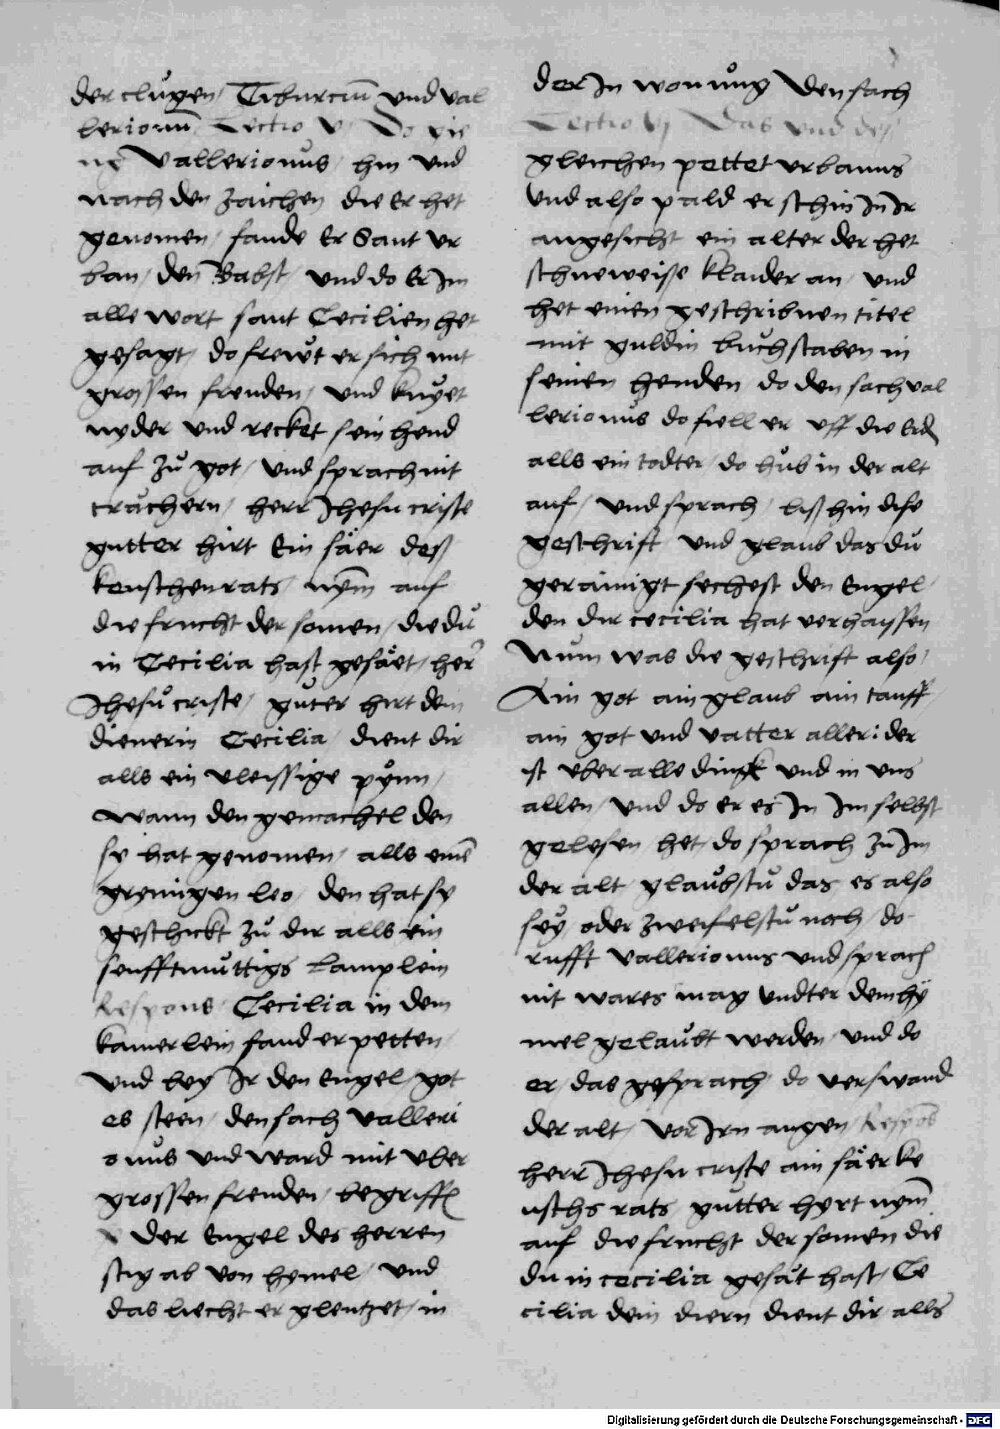 der clůgen / Tiburciū und val
lerionū Lectio v Do gie
ng Vallerionus / hin und
nach den zaichen die er het
genomen / fande Er Sant Vr
ban / den Babst / und do Er Im
alle wort sant Cecilien het
gesagt / do frewt er sich mit
grossen freuden / und knyet
nyder und recket sein hend
auf zů got / und sprach mit
trächern / herr Jhesu criste
gutter hirt Ein säer deß
keuschen rats / nym auf
die frucht der somen / die dů
in Cecilia hast gesäet / her
Jhesu criste / guter hirt dein
dienerin Cecilia / dient dir
alls ein vleissige pynn /
wann den gemachel den
sy hat genomen / alls einē
gryningen leo / den hat sy
geschickt zů dir alls ein
senfftmuttigs Lamplein
Respons Cecilia in dem
kamerlein fand er petten /
und bey Ir den Engel got
es steen / den sach valleri
onus und ward mit vber
grossen freuden / begriffen
V Der Engel des herren
stig ab von hymel / und
das liecht er glentzet / in
der In wonung Den sach
Lectio vj Das und deß
gleichen pettet vrbanus
und also pald er schin In Ir
angesicht ein alter der het
schneweisse klaider an / und
het einen geschribnen titel
mit guldin bůchstaben in
seinen henden / do den sach val
lerionus do fiell er vff die Erd
alls ein todter / do hůb in der alt
auf / und sprach / liß hin dise
geschrift und glaub das du
gerainigt sechest den Engel /
den dir cecilia hat verhayssen
Num was die geschrift also /
Ain got ain glaub ain tauff /
ain got und vatter aller / der
ist vber alle dingk und in vns
allen / und do er es In Im selbst
gelesen het / do sprach zů Im
der alt / glaubstu das es also
sey / oder zweifelstu noch / do
rufft vallerionus und sprach
nit wares mag vndter dem hy
mel gelaubt werden / und do
er / das gesprach / do verswand
der alt / vor Irn augen / Respōs
herr Jhesu criste ain säer ke
uschs rats gutter hyrt nym
auf die frucht der somen die
du in cecilia gesät hast / Ce
cilia dein diern dient dir alls
Digitalisierung gefördert durch die Deutsche Forschungsgemeinschaft - DFG